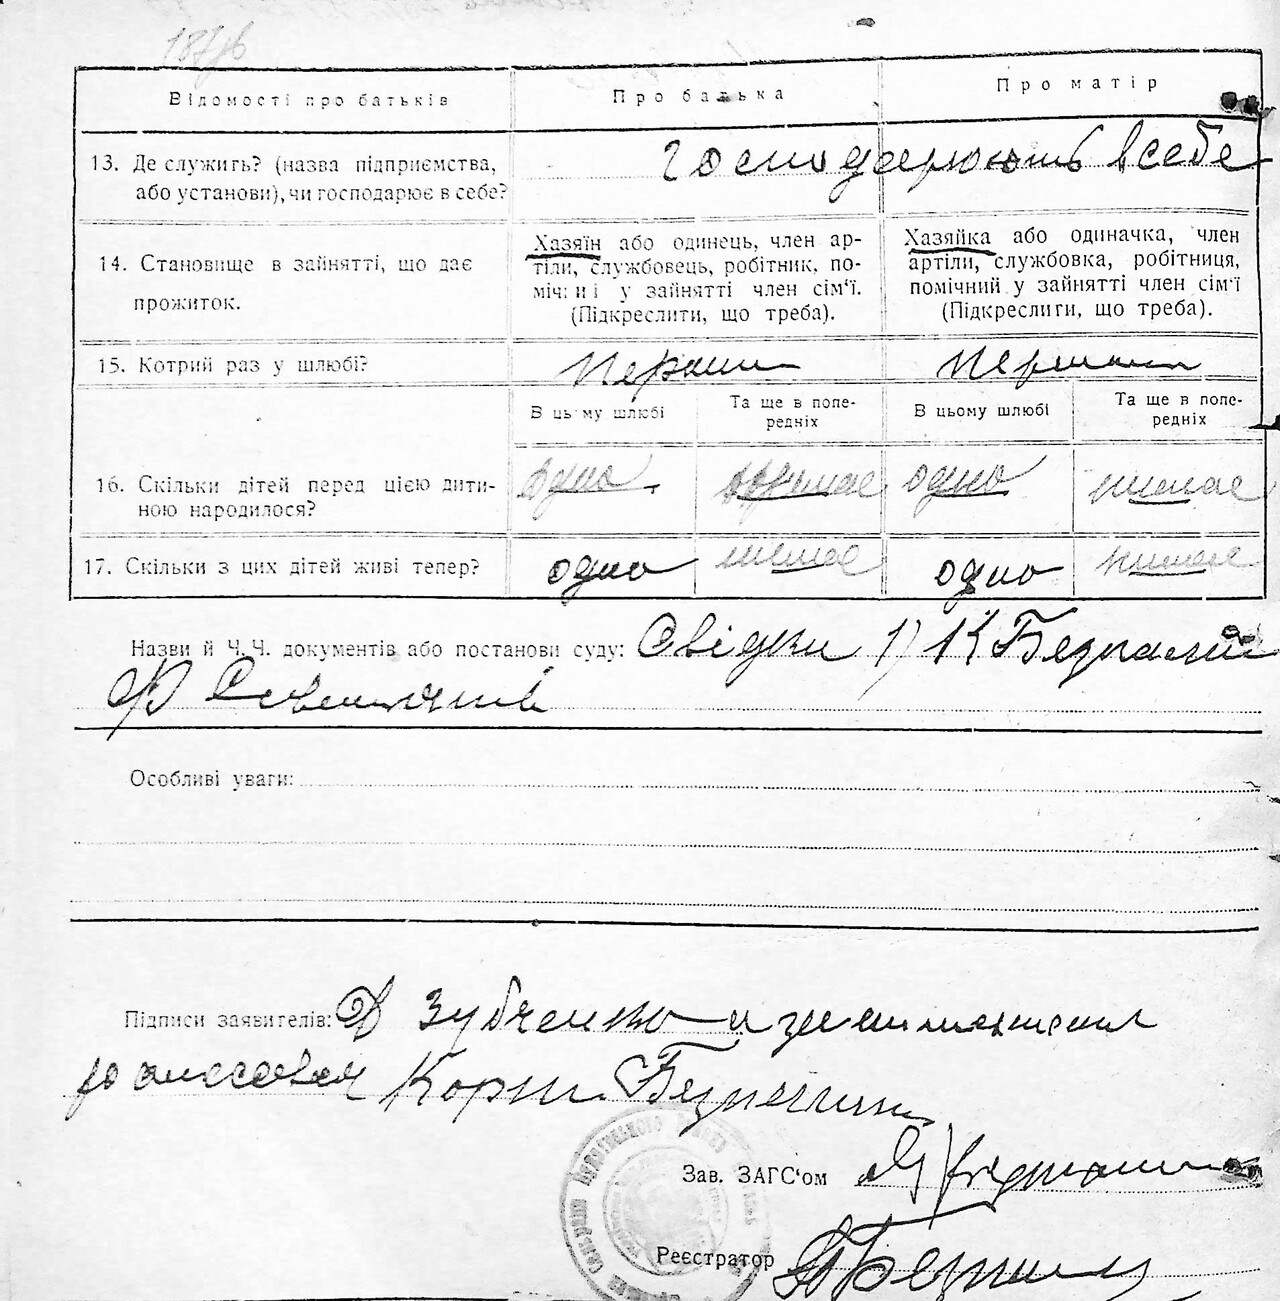 Відомості про батьків
Про батька
Про матір
13. Де служить? (назва підприємства,
або установи), чи господарює в себе?
Господарюють в себе
14. Становище в зайнятті, що дає
прожиток.
Хазяїн або одинець, член ар-
тіли, службовець, робітник, по-
мічниі у зайнятті член сім'ї.
(Підкреслити, що треба).
Хазяйка або одиначка, член
артіли, службовка, робітниця,
помічний у зайнятті член сім'ї
(Підкреслити, що треба).
15. Котрий раз у шлюбі?
В цьому шлюбі
Та ще в попе-
редніх
В цьому шлюбі
Та ще в попе-
редніх
16. Скільки дітей перед цією дити-
ною народилося?
одно
одно
немає
17. Скільки з цих дітей живі тепер?
одно
немає
одно
немає
Назви й Ч.Ч. документів або постанови суду: Свідки 1) К
Ф
Особливі уваги:
Підписи заявителів: Зубченко
Зав. ЗАГС'ом
Реєстратор